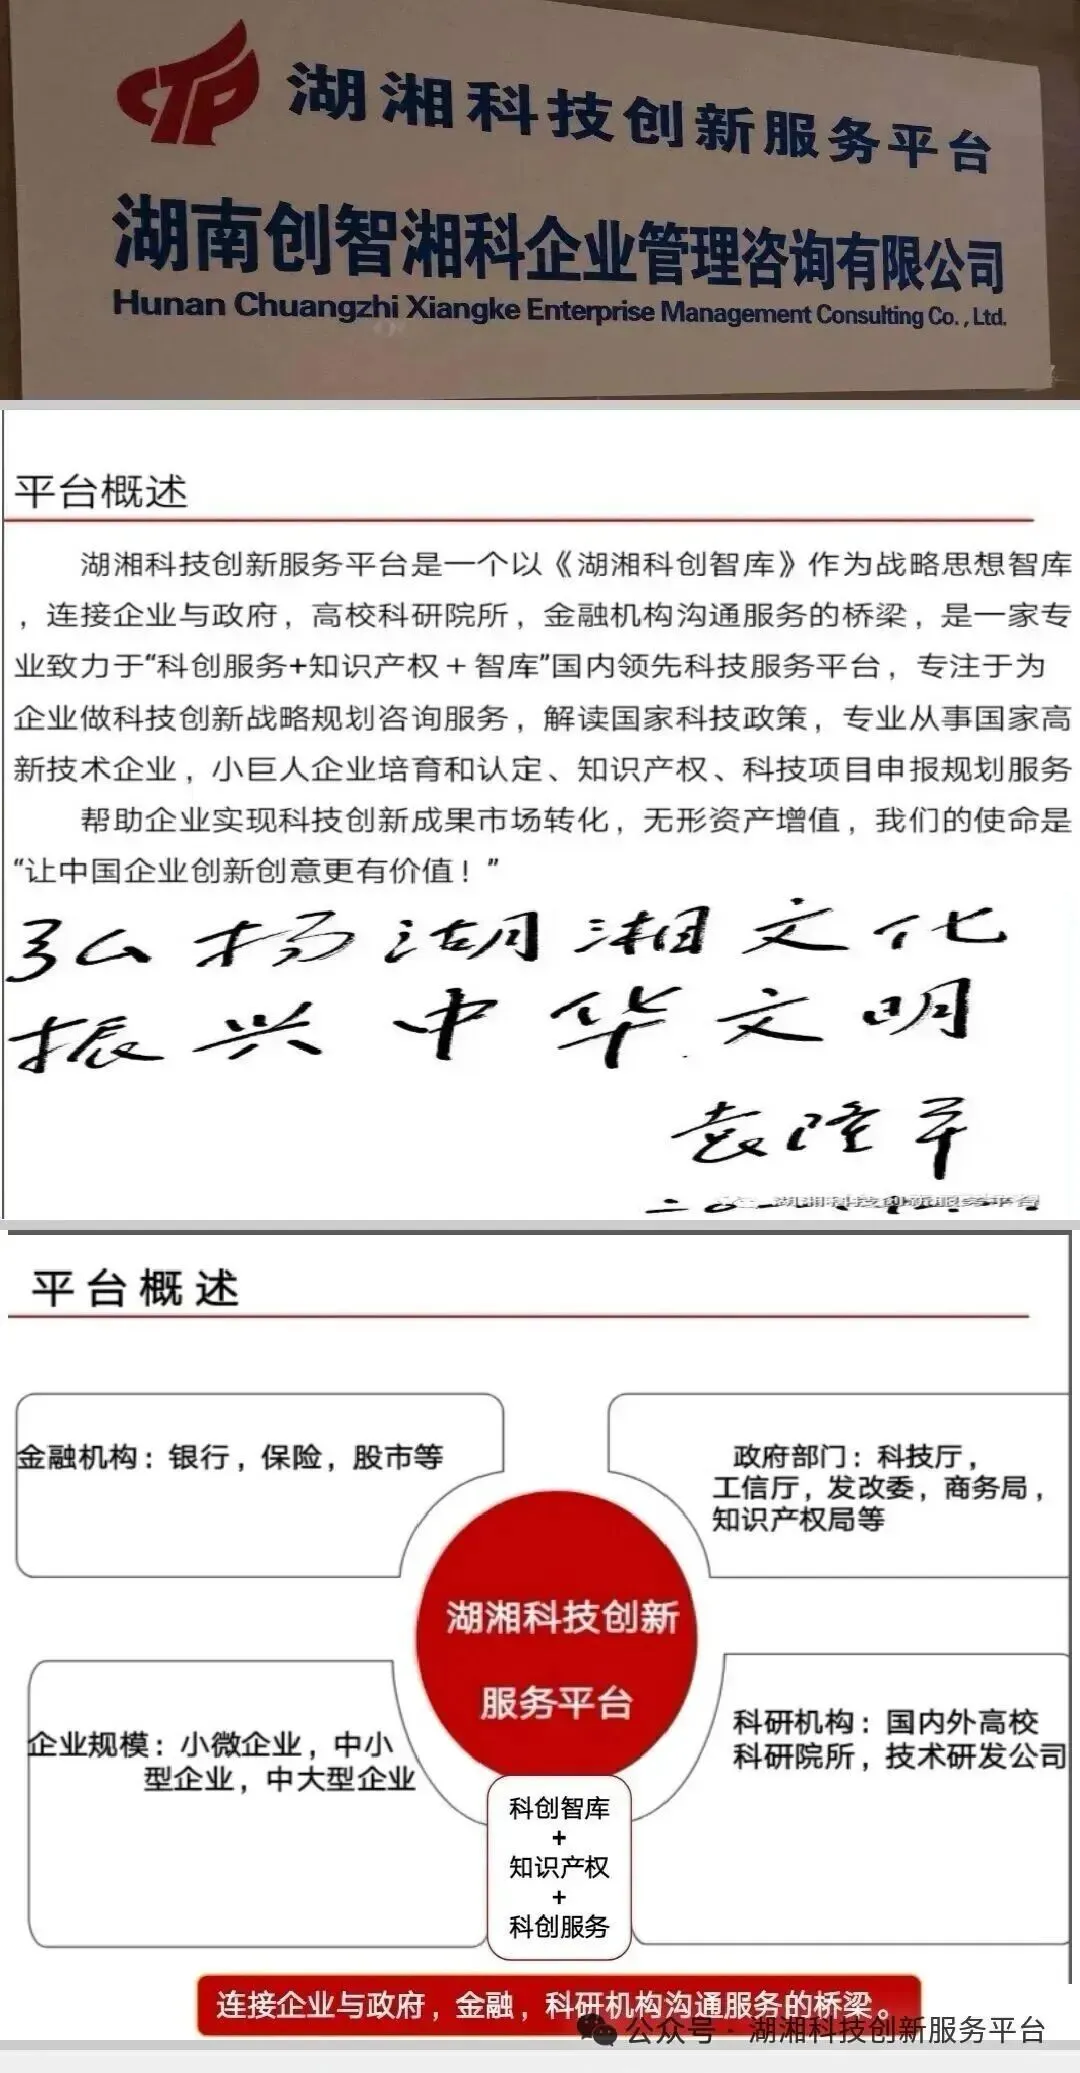 CTP
湖湘科技创新服务平台
湖南创智湘科企业管理咨询有限公司
Hunan Chuangzhi Xiangke Enterprise Management Consulting Co., Ltd.
平台概述
湖湘科技创新服务平台是一个以《湖湘科创智库》作为战略思想智库
，连接企业与政府，高校科研院所，金融机构沟通服务的桥梁，是一家专
业致力于“科创服务+知识产权＋智库”国内领先科技服务平台，专注于为
企业做科技创新战略规划咨询服务，解读国家科技政策，专业从事国家高
新技术企业，小巨人企业培育和认定、知识产权、科技项目申报规划服务
帮助企业实现科技创新成果市场转化，无形资产增值，我们的使命是
“让中国企业创新创意更有价值！”
弘扬湖湘文化
振兴中华文明
袁隆平
湖湘科技创新服务平台
平台概述
金融机构：银行，保险，股市等
政府部门：科技厅，
工信厅，发改委，商务局，
知识产权局等
湖湘科技创新
服务平台
企业规模：小微企业，中小
型企业，中大型企业
科研机构：国内外高校
科研院所，技术研发公司
科创智库
+
知识产权
+
科创服务
连接企业与政府，金融，科研机构沟通服务的桥梁。
公众号 · 湖湘科技创新服务平台